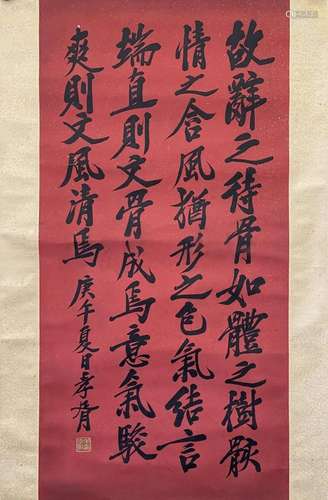 故辭之待骨如體之樹骸
情之含風猶形之包氣結言
端直則文骨成焉意氣駿
爽則文風清焉
庚午夏日孝胥